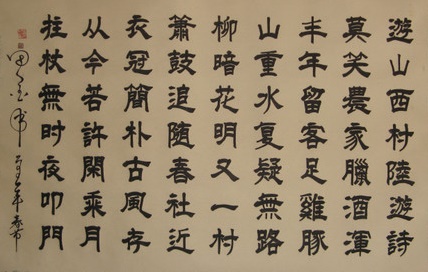 遊山西村陸遊詩
莫笑農家臘酒渾
丰年留客足雞豚
山重水复疑無路
柳暗花明又一村
簫鼓追随春社近
衣冠簡朴古風存
从今若許閑乘月
拄杖無时夜叩門